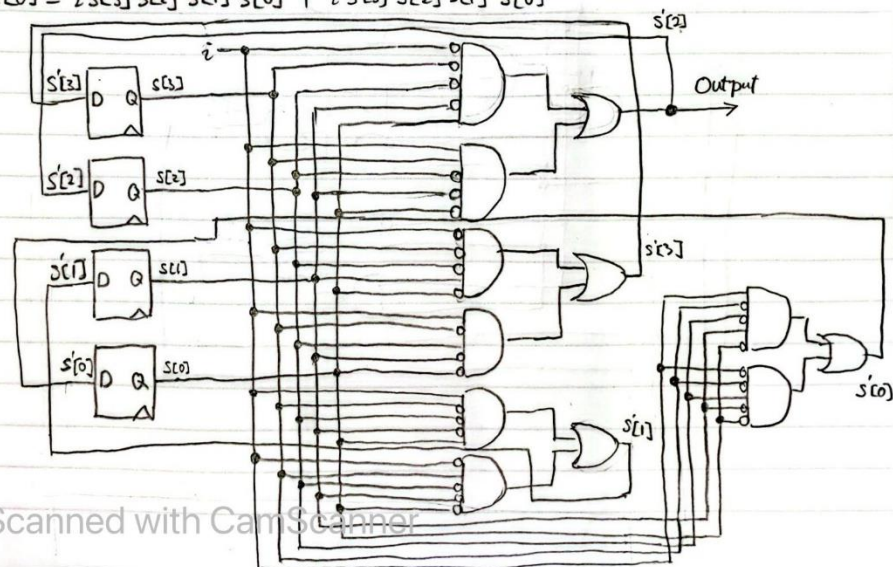 s'[2]
i
s'[3]
D Q
s[3]
Output
s'[2]
D Q
s[2]
s'[1]
D Q
s[1]
s'[3]
s'[0]
D Q
s[0]
s'[0]
s'[1]
Scanned with CamScanner